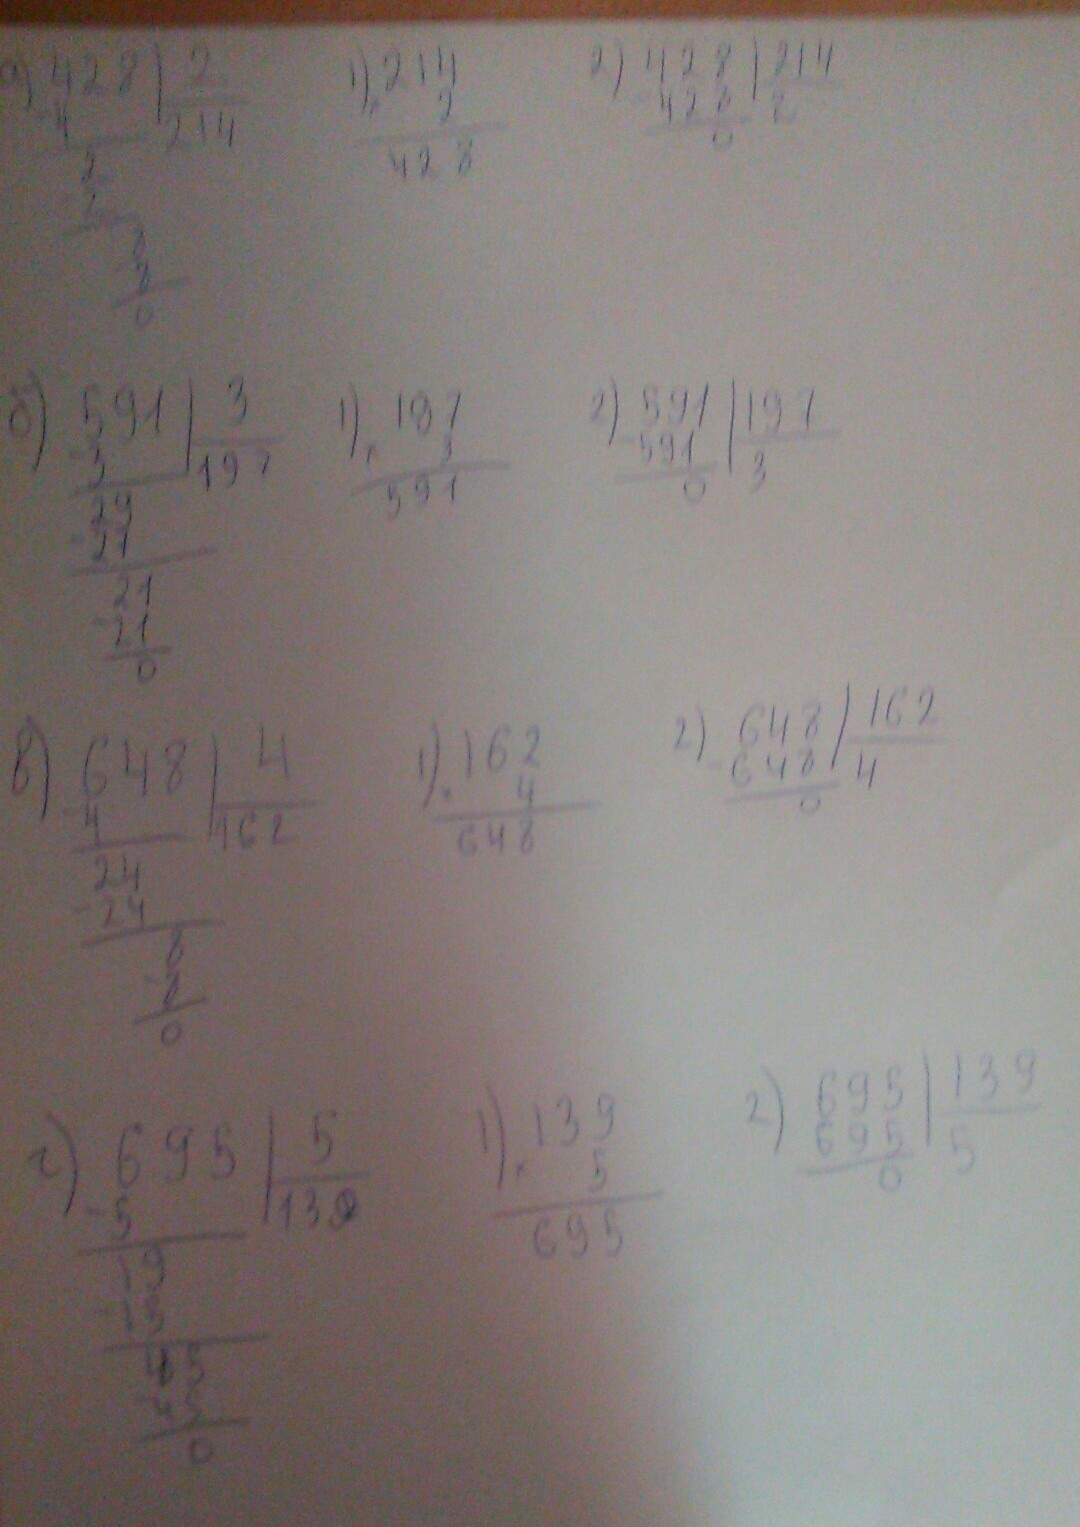 а) 428 | 2
-4 | 214
2
-2
8
-8
0
1) 214
· 2
428
2) 428 | 214
-428 | 2
0
б) 591 | 3
-3 | 197
29
-27
21
-21
0
1) 197
· 3
591
2) 591 | 197
-591 | 3
0
в) 648 | 4
-4 | 162
24
-24
8
-8
0
1) 162
· 4
648
2) 648 | 162
-648 | 4
0
г) 695 | 5
-5 | 139
19
-15
45
-45
0
1) 139
· 5
695
2) 695 | 139
695 | 5
0